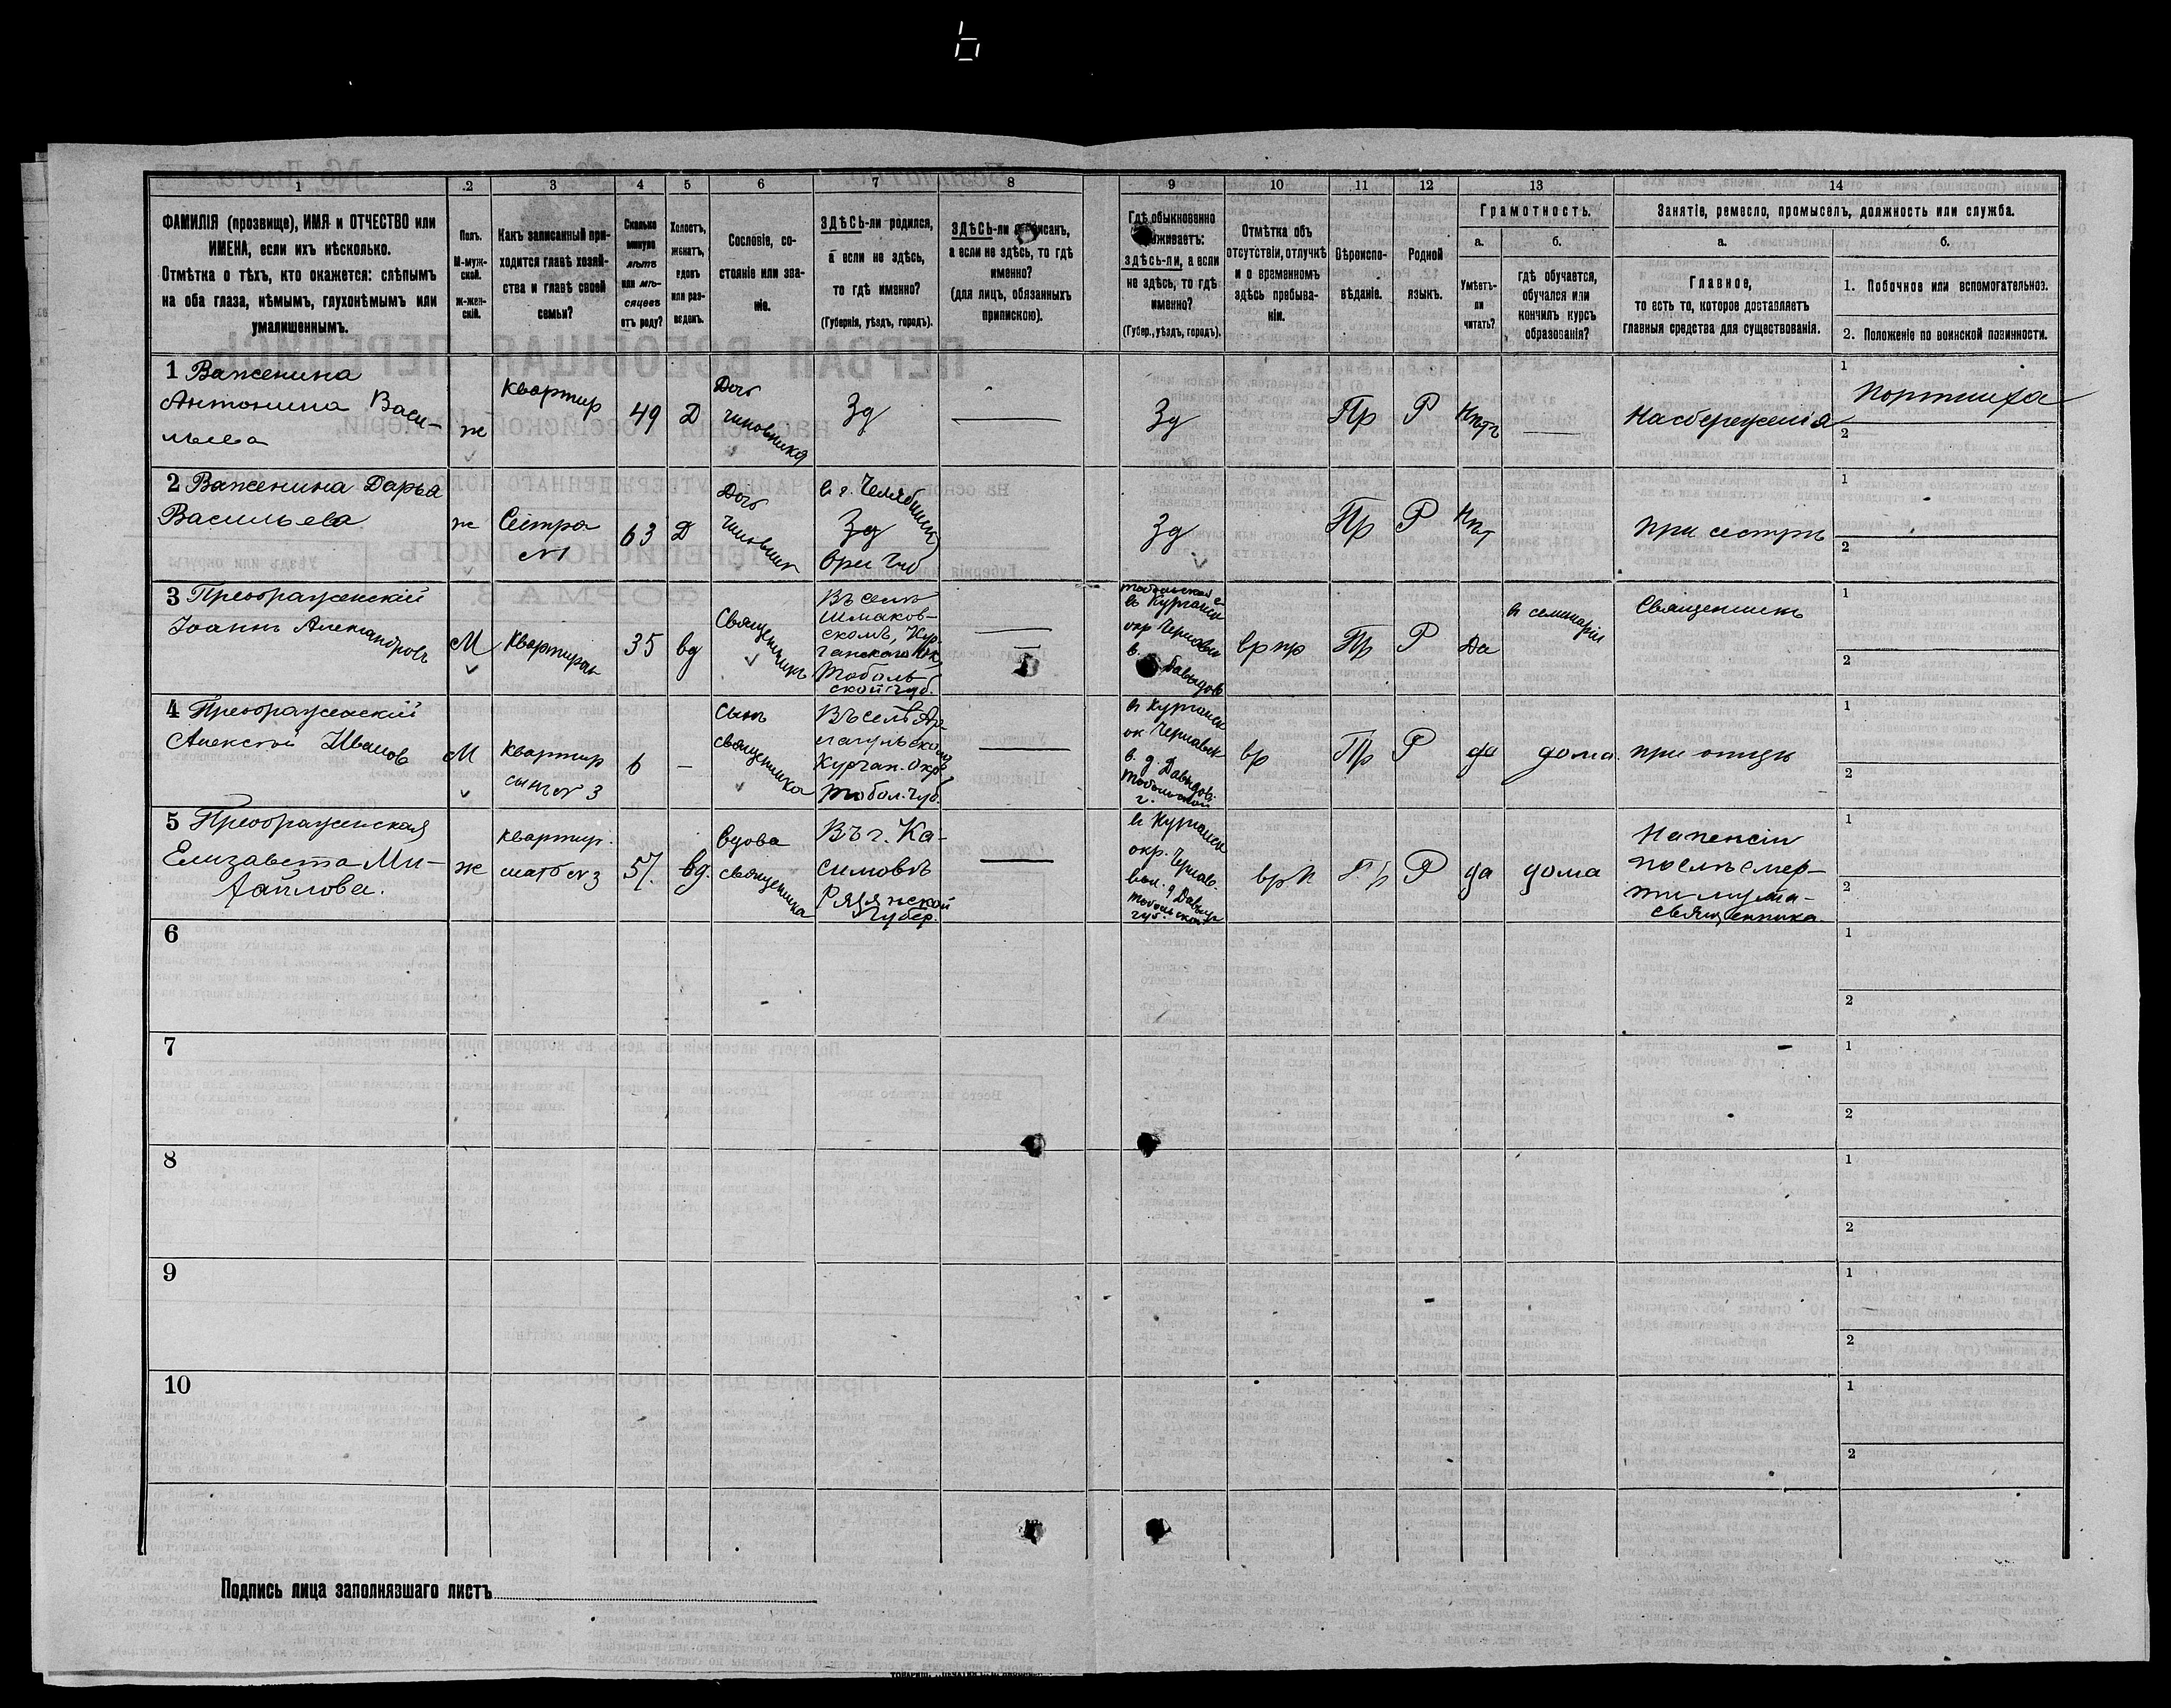 1
2
3
4
5
6
7
8
9
10
11
12
13
14
ФАМИЛІЯ (прозвище), ИМЯ и ОТЧЕСТВО или
ИМЕНА, если ихъ нѣсколько.
Отмѣтка о тѣхъ, кто окажется: слѣпымъ
на оба глаза, нѣмымъ, глухонѣмымъ или
умалишеннымъ.
Полъ.
М-муж-
ской.
ж-жен-
скій.
Какъ записанный при-
ходится главѣ хозяй-
ства и главѣ своей
семьи?
Сколько
минуло
лѣтъ
или мѣ-
сяцевъ
отъ роду?
Холостъ,
женатъ,
вдовъ
или раз-
веденъ.
Сословіе, со-
стояніе или зва-
ніе.
ЗДѢСЬ-ли родился,
а если не здѣсь,
то гдѣ именно?
(Губернія, уѣздъ, городъ).
ЗДѢСЬ-ли приписанъ,
а если не здѣсь, то гдѣ
именно?
(для лицъ, обязанныхъ
припискою).
Гдѣ обыкновенно
проживаетъ:
здѣсь-ли, а если
не здѣсь, то гдѣ
именно?
(Губер., уѣздъ, городъ).
Отмѣтка объ
отсутствіи, отлучкѣ
и о временномъ
здѣсь пребыва-
ніи.
Вѣроиспо-
вѣданіе.
Родной
языкъ.
Грамотность.
а.
б.
Умѣетъ-
ли
читать?
гдѣ обучается,
обучался или
кончилъ курсъ
образованія?
Занятіе, ремесло, промыселъ, должность или служба.
а.
б.
Главное,
то есть то, которое доставляетъ
главныя средства для существованія.
1. Побочное или вспомогательное.
2. Положеніе по воинской повинности.
1 Важенина
Антонина Васи-
льева
ж
Квартир
49
Д
Дочь
чиновника
Зд
Зд
Пр
Р
Нѣтъ
На сбереженія
1
Портниха
2
2 Важенина Дарья
Васильева
ж
Сестра
№1
63
Д
Дочь
чиновник
в г. Челябинск
Зд
Орн Губ
Зд
Пр
Р
Нѣт
при сестрѣ
1
2
3 Преображенскій
Іоаннъ Александровъ
М
Квартиран
35
вд
Священникъ
Въ селѣ
Шмаков-
скомъ, Кур-
ганского Ок
Тоболь-
ской губ.
Тобольской г.
в Курганск
окр Чернавск
в. Давыдов
вр пр
Пр
Р
Да
в семинаріи
Священникъ
1
2
4 Преображенскій
Алексѣй Иванов
М
Квартир
сынъ №3
6
Сынъ
священника
Въ селѣ Ар-
лагульском
Курган. Окр
Тобол. Губ.
в Курганск
ок Чернавск
в. д Давыдов.
Тобольской
г.
вр
Пр
Р
да
дома
при отцѣ
1
2
5 Преображенская
Елизавета Ми-
хайлова.
ж
квартир.
мать №3
57.
вд.
Вдова
священника
Въ г. Ка-
симовѣ
Рязанской
Губер.
в Курганск
окр. Чернав.
вол. д Давыд
Тобольской
губ.
вр п
Пр
Р
да
дома
На пенсіи
послѣ смер-
ти мужа-
священника.
1
2
6
1
2
7
1
2
8
1
2
9
1
2
10
1
2
Подпись лица заполнявшаго листъ